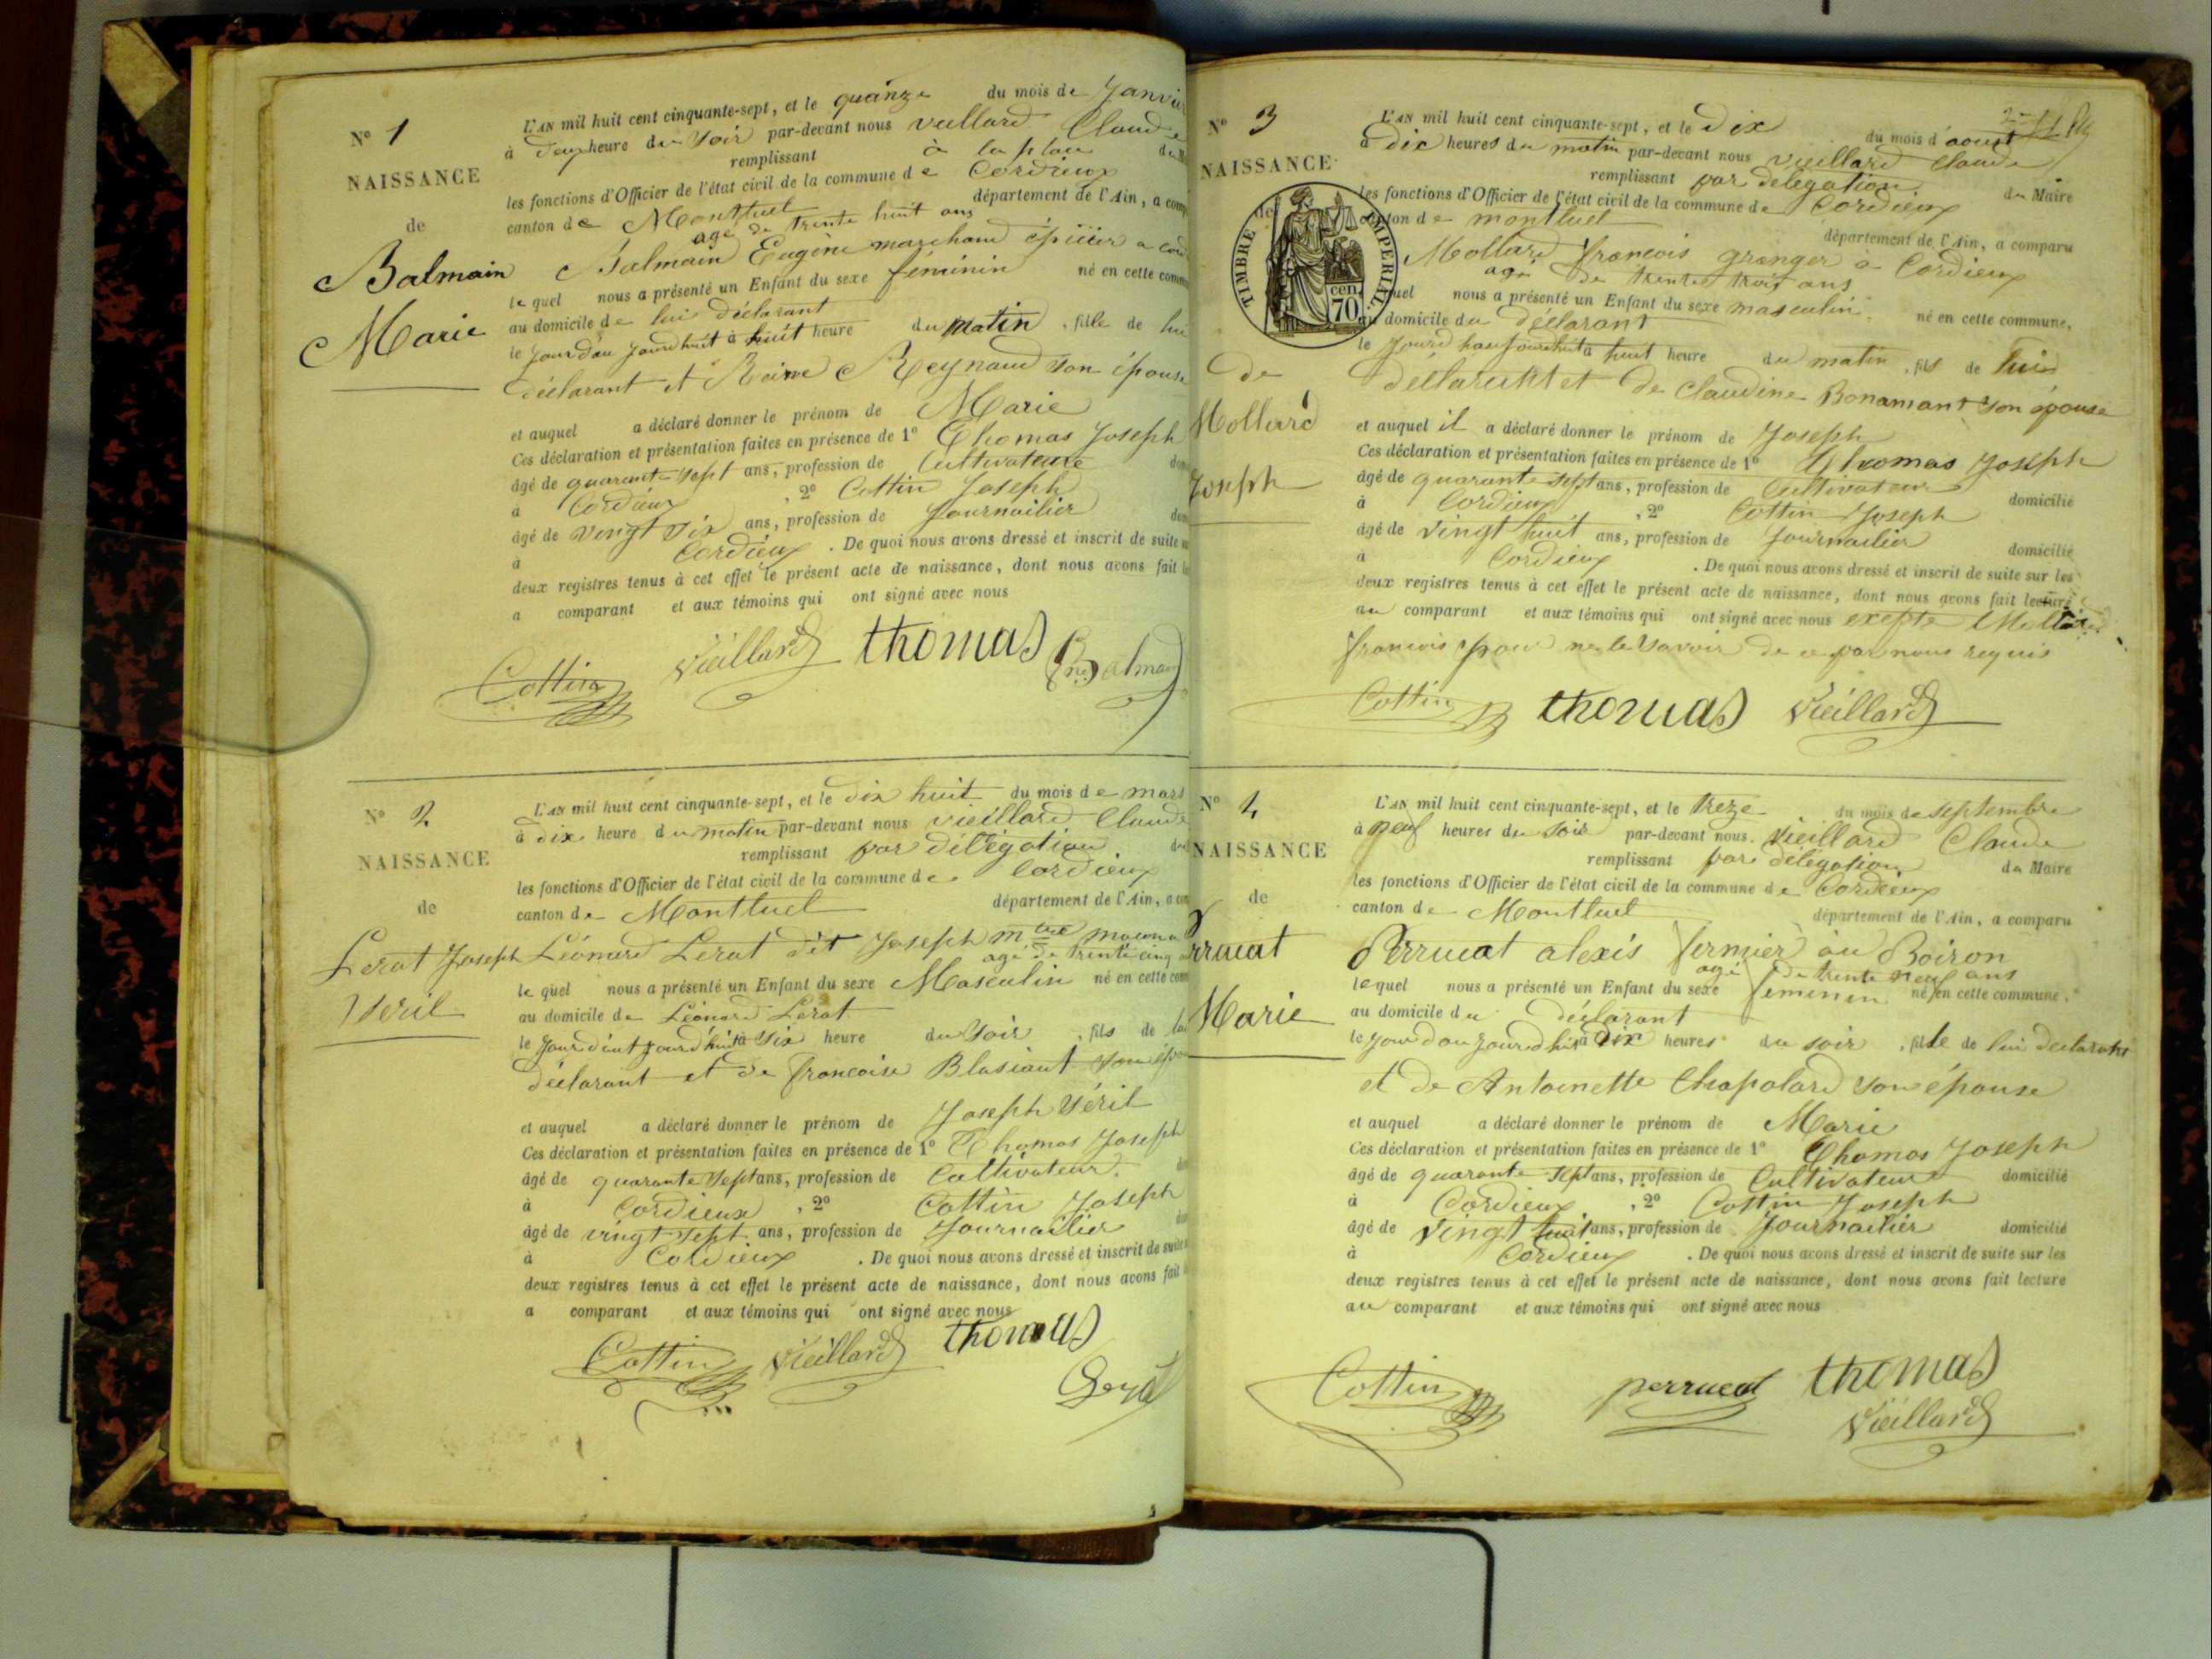 N° 1
NAISSANCE
de
Balmain
Marie
L'AN mil huit cent cinquante-sept, et le quinze du mois de Janvi
à deux heure du soir par-devant nous vieillard Claude
remplissant à la place du M
les fonctions d'Officier de l'état civil de la commune de Cordieux
canton de Montluel département de l'Ain, a comp
agé de trente huit ans
Balmain Eugène marchand épicier a Cord
lequel nous a présenté un Enfant du sexe féminin né en cette comm
au domicile de lui déclarant
le jourd'au jourdhuit à huit heure du matin, fille de lui
déclarant et Reine Reynaud son épouse
et auquel a déclaré donner le prénom de Marie
Ces déclaration et présentation faites en présence de 1° Thomas Joseph
âgé de quarante sept ans, profession de Cultivateur dom
à Cordieux, 2° Cottin Joseph
âgé de vingt six ans, profession de Journailier dom
à Cordieux. De quoi nous avons dressé et inscrit de suite
deux registres tenus à cet effet le présent acte de naissance, dont nous avons fait
a comparant et aux témoins qui ont signé avec nous
Cottin Vieillard thomas Balmain
N° 2
NAISSANCE
de
Lerat Joseph
Véril
L'AN mil huit cent cinquante-sept, et le dix huit du mois de mars
à dix heure du matin par-devant nous vieillard Claude
remplissant par délégation du
les fonctions d'Officier de l'état civil de la commune de Cordieux
canton de Montluel département de l'Ain, a com
Léonard Lerat dit Joseph mtre
agé de trente cinq
lequel nous a présenté un Enfant du sexe Masculin né en cette com
au domicile de Léonard Lerat
le jourd'aut jourd'huit à six heure du soir, fils de lui
déclarant et de francoise Blasiaut son épou
et auquel a déclaré donner le prénom de Joseph Véril
Ces déclaration et présentation faites en présence de 1° Thomas Joseph
âgé de quarante sept ans, profession de Cultivateur
à Cordieux, 2° Cottin Joseph
âgé de vingt sept ans, profession de Journailier
à Cordieux. De quoi nous avons dressé et inscrit de suite
deux registres tenus à cet effet le présent acte de naissance, dont nous avons fait
a comparant et aux témoins qui ont signé avec nous
Cottin Vieillard thomas
N° 3
NAISSANCE
de
TIMBRE IMPERIAL
70 cen.
de
Mollard
Joseph
L'AN mil huit cent cinquante-sept, et le dix du mois d'aout
à dix heures du matin par-devant nous vieillard Claude
remplissant par délégation du Maire
les fonctions d'Officier de l'état civil de la commune de Cordieux
canton de montluel département de l'Ain, a comparu
Mollard francois granger a Cordieux
agé de trente trois ans
quel nous a présenté un Enfant du sexe masculin né en cette commune,
au domicile du déclarant
le jourd'hau jourdhuit à huit heure du matin, fils de lui
déclarent et de Claudine Bonamant son épouse
et auquel il a déclaré donner le prénom de Joseph
Ces déclaration et présentation faites en présence de 1° Thomas Joseph
âgé de quarante sept ans, profession de Cultivateur domicilié
à Cordieux, 2° Cottin Joseph
âgé de vingt huit ans, profession de Journailier domicilié
à Cordieux. De quoi nous avons dressé et inscrit de suite sur les
deux registres tenus à cet effet le présent acte de naissance, dont nous avons fait lecture
au comparant et aux témoins qui ont signé avec nous exepté Mollard
francois pour ne le savoir de ce par nous requis
Cottin thomas Vieillard
N° 4
NAISSANCE
de
rrucat
Marie
L'AN mil huit cent cinquante-sept, et le treze du mois de septembre
à neuf heures du soir par-devant nous Vieillard Claude
remplissant par délégation du Maire
les fonctions d'Officier de l'état civil de la commune de Cordieux
canton de Montluel département de l'Ain, a comparu
Perrucat alexis fermier au Boiron
agé de trente neuf ans
lequel nous a présenté un Enfant du sexe feminen né en cette commune.
au domicile du déclarant
le jourd'au jourdhui à dix heures du soir, fille de lui declarant
et de Antoinette Chapolard son épouse
et auquel a déclaré donner le prénom de Marie
Ces déclaration et présentation faites en présence de 1° Thomas Joseph
âgé de quarante sept ans, profession de Cultivateur domicilié
à Cordieux, 2° Cottin Joseph
âgé de Vingt huit ans, profession de Journailier domicilié
à Cordieux. De quoi nous avons dressé et inscrit de suite sur les
deux registres tenus à cet effet le présent acte de naissance, dont nous avons fait lecture
au comparant et aux témoins qui ont signé avec nous
Cottin perrucat thomas
Vieillard